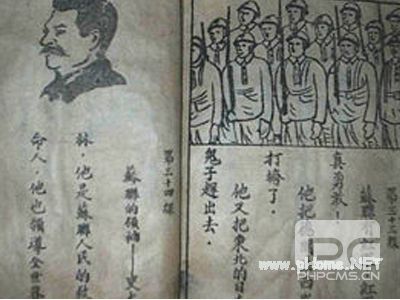 第三十三課
蘇聯有一 紅
真勇敢！
他把德
打垮了．
他又把東北的日
鬼子趕出去．
第三十四課
蘇聯的領袖——史
林．他是蘇聯人民的救
命人．他也領導全世
PHPCMS.CN